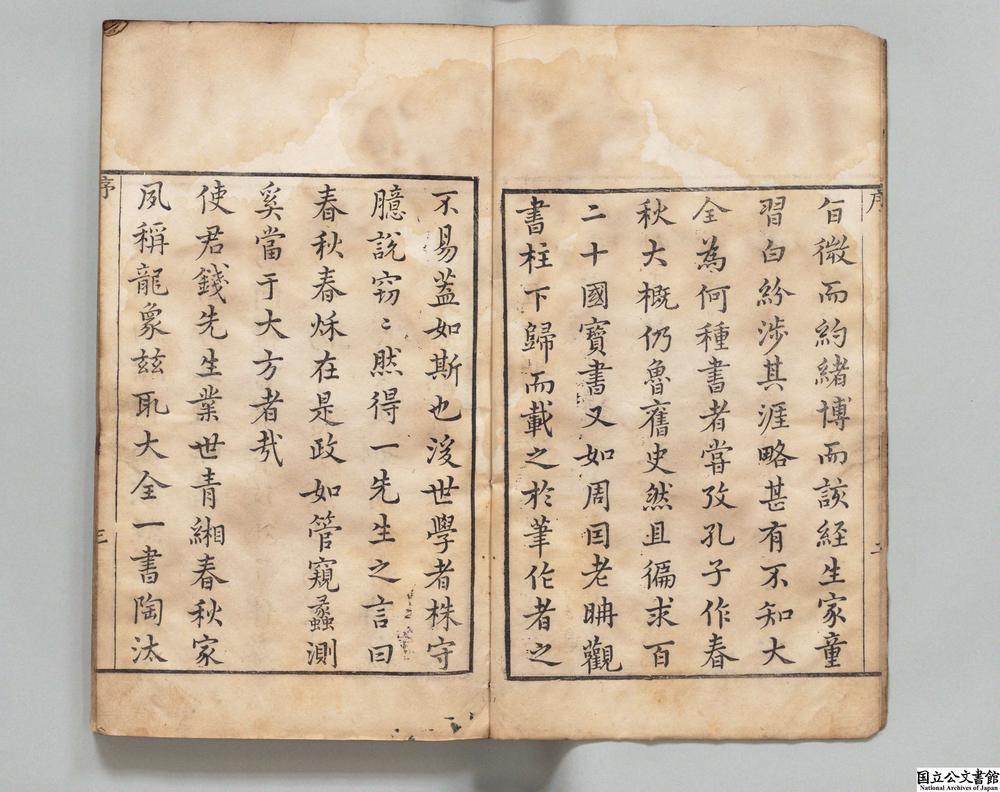 序
二
旨微而約緒博而該經生家童
習白紛涉其涯略甚有不知大
全為何種書者嘗攷孔子作春
秋大概仍魯舊史然且徧求百
二十國寶書又如周因老聃觀
書柱下歸而載之於筆作者之
不易蓋如斯也後世學者株守
臆說窃〻然得一先生之言曰
春秋春秌在是政如管窺蠡測
奚當于大方者哉
使君錢先生業世青緗春秋家
夙稱龍象玆取大全一書陶汰
序
三
国立公文書館
National Archives of Japan